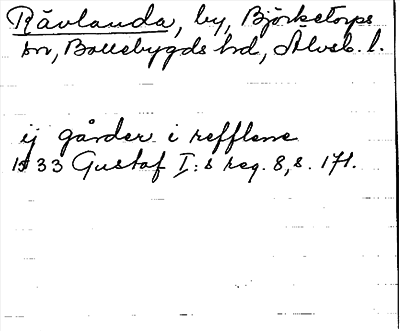 Rävlanda, by, Björketorps
sn, Bollebygds hd, Älvsb. l.
ij gårder i refflene
1533 Gustaf I:s reg. 8, s. 171.